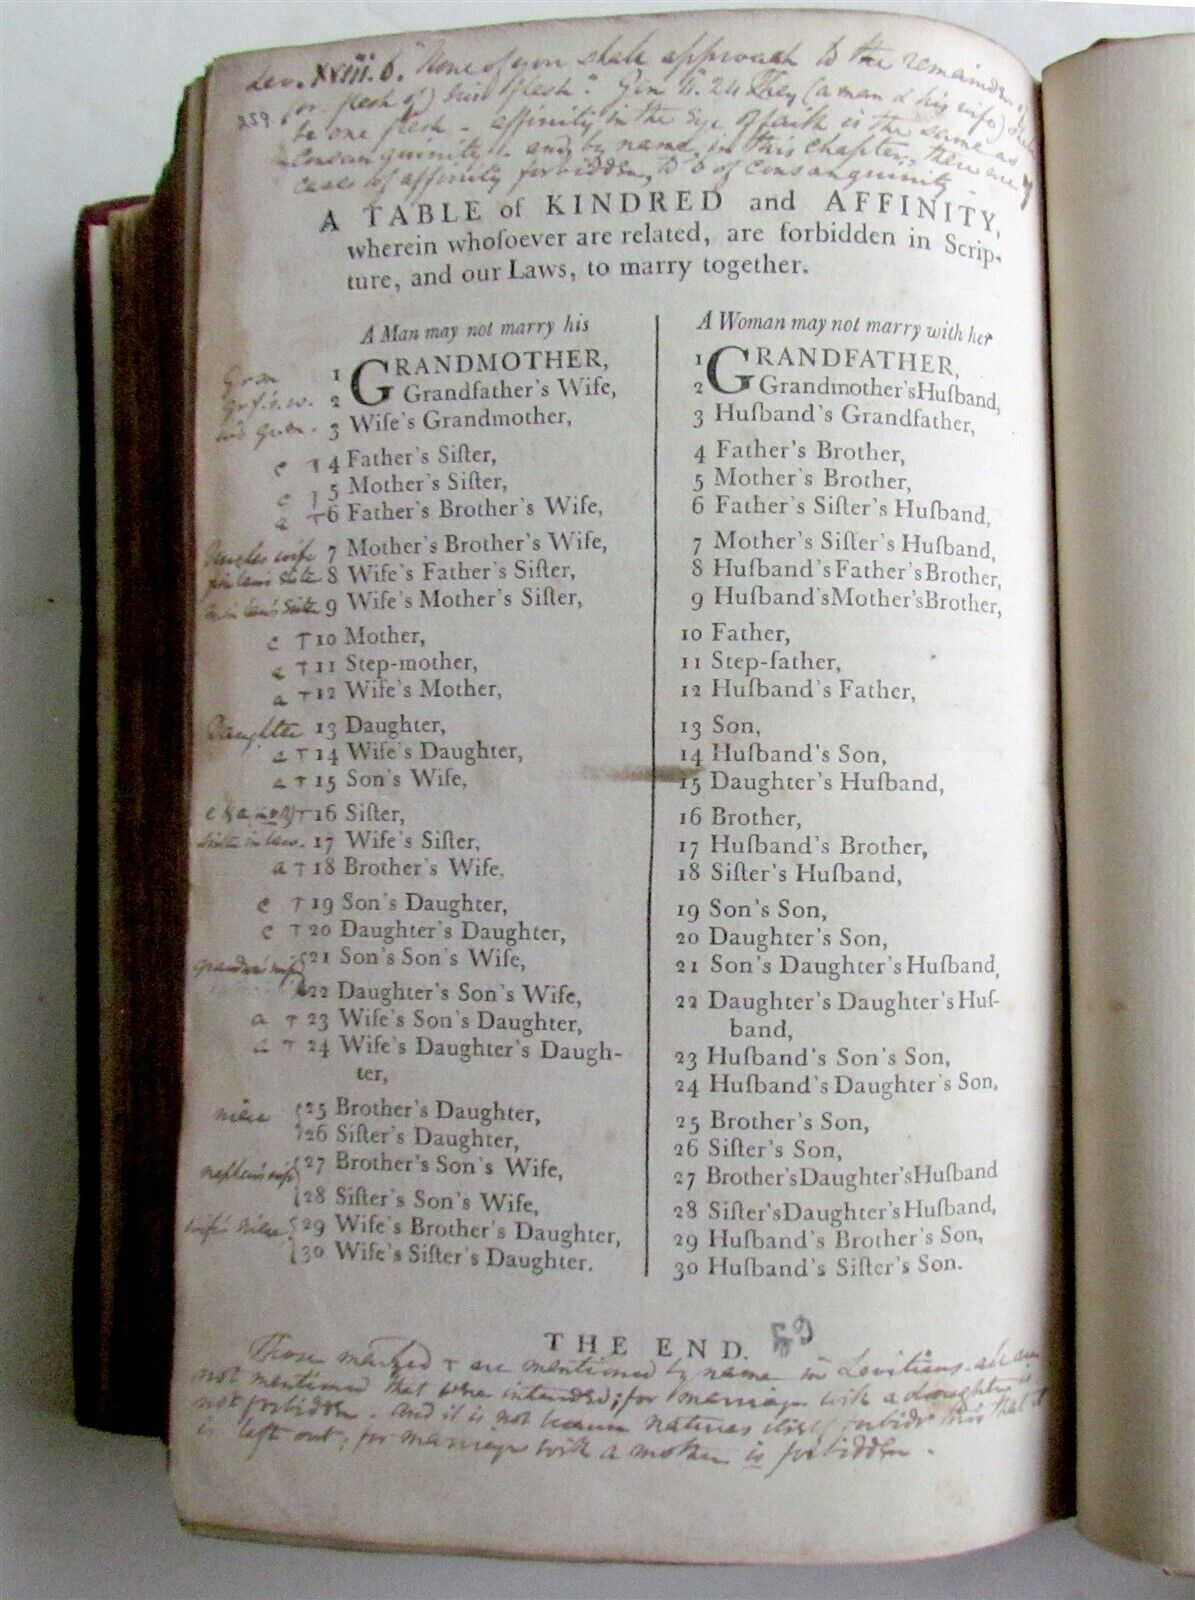 Lev. XVIII. 6. "None of you shall approach to the remainder of
(or flesh of) his flesh." Gen. 11. 24 They (a man & his wife) shall
259. be one flesh - affinity in the Eye of faith is the same as
consanguinity - and by name, in this chapter, there are
cases of affinity forbidden, to 6 of consanguinity -
A TABLE of KINDRED and AFFINITY,
wherein whoſoever are related, are forbidden in Scrip-
ture, and our Laws, to marry together.
A Man may not marry his
1 GRANDMOTHER,
2 Grandfather's Wife,
3 Wife's Grandmother,
c T 4 Father's Siſter,
c T 5 Mother's Siſter,
a T 6 Father's Brother's Wife,
7 Mother's Brother's Wife,
8 Wife's Father's Siſter,
9 Wife's Mother's Siſter,
c T 10 Mother,
a T 11 Step-mother,
a T 12 Wife's Mother,
Daughter 13 Daughter,
a T 14 Wife's Daughter,
a T 15 Son's Wife,
T 16 Siſter,
sister in law. 17 Wife's Siſter,
a T 18 Brother's Wife,
c T 19 Son's Daughter,
c T 20 Daughter's Daughter,
21 Son's Son's Wife,
22 Daughter's Son's Wife,
a T 23 Wife's Son's Daughter,
a T 24 Wife's Daughter's Daugh-
ter,
niece 25 Brother's Daughter,
26 Siſter's Daughter,
nephew's wife 27 Brother's Son's Wife,
28 Siſter's Son's Wife,
wife's niece 29 Wife's Brother's Daughter,
30 Wife's Siſter's Daughter.
A Woman may not marry with her
1 GRANDFATHER,
2 Grandmother's Huſband,
3 Huſband's Grandfather,
4 Father's Brother,
5 Mother's Brother,
6 Father's Siſter's Huſband,
7 Mother's Siſter's Huſband,
8 Huſband's Father's Brother,
9 Huſband's Mother's Brother,
10 Father,
11 Step-father,
12 Huſband's Father,
13 Son,
14 Huſband's Son,
15 Daughter's Huſband,
16 Brother,
17 Huſband's Brother,
18 Siſter's Huſband,
19 Son's Son,
20 Daughter's Son,
21 Son's Daughter's Huſband,
22 Daughter's Daughter's Huſ-
band,
23 Huſband's Son's Son,
24 Huſband's Daughter's Son,
25 Brother's Son,
26 Siſter's Son,
27 Brother's Daughter's Huſband
28 Siſter's Daughter's Huſband,
29 Huſband's Brother's Son,
30 Huſband's Siſter's Son.
THE END.
Those marked T are mentioned by name in Leviticus -
not mentioned that were intended; for marriage with a daughter is
not forbidden. And it is not because nature itself forbids this that it
is left out; for marriage with a mother is forbidden.